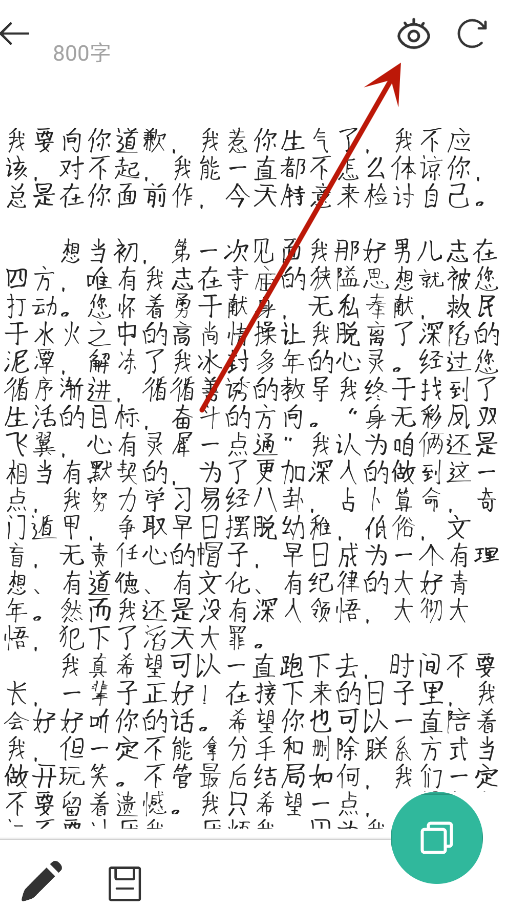 800字
我要向你道歉，我惹你生气了，我不应
该，对不起，我能一直都不怎么体谅你，
总是在你面前作，今天特意来检讨自己。
想当初，第一次见面我那好男儿志在
四方，唯有我志在寺庙的狭隘思想就被您
打动。您怀着勇于献身，无私奉献，救民
于水火之中的高尚情操让我脱离了深陷的
泥潭，解冻了我冰封多年的心灵。经过您
循序渐进，循循善诱的教导我终于找到了
生活的目标，奋斗的方向。“身无彩凤双
飞翼，心有灵犀一点通”我认为咱俩还是
相当有默契的，为了更加深入的做到这一
点，我努力学习易经八卦，占卜算命，奇
门遁甲，争取早日摆脱幼稚，低俗，文
盲，无责任心的帽子，早日成为一个有理
想、有道德、有文化、有纪律的大好青
年。然而我还是没有深入领悟，大彻大
悟，犯下了滔天大罪。
我真希望可以一直跑下去，时间不要
长，一辈子正好！在接下来的日子里，我
会好好听你的话。希望你也可以一直陪着
我，但一定不能拿分手和删除联系方式当
做开玩笑。不管最后结局如何，我们一定
不要留着遗憾。我只希望一点，